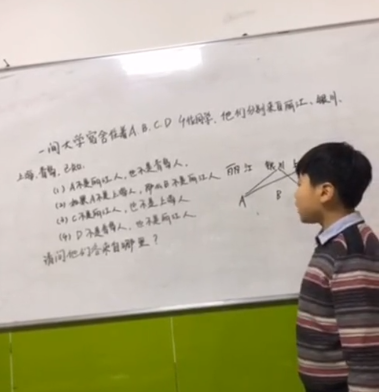 一间大学宿舍住着A.B.C.D 4位同学.他们分别来自丽江、银川.
上海,青岛,已知.
(1) A不是丽江人,也不是青岛人.
(2) 如果A不是上海人,那么B不是丽江人
(3) C不是丽江人,也不是上海人
(4) D不是青岛人,也不是丽江人
请问他们各来自哪里?
丽江 银川
A B